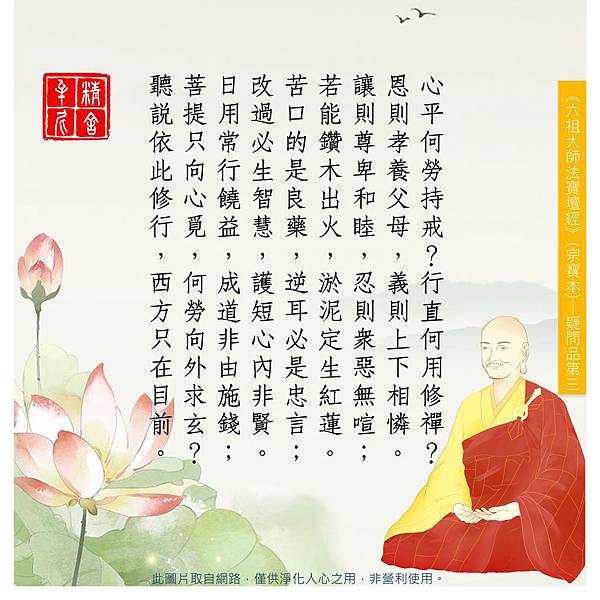 《六祖大師法寶壇經》（宗寶本）─疑問品第三
心平何勞持戒？行直何用修禪？
恩則孝養父母，義則上下相憐。
讓則尊卑和睦，忍則眾惡無喧；
若能鑽木出火，淤泥定生紅蓮。
苦口的是良藥，逆耳必是忠言；
改過必生智慧，護短心內非賢。
日用常行饒益，成道非由施錢；
菩提只向心覓，何勞向外求玄？
聽說依此修行，西方只在目前。
精舍
此圖片取自網路，僅供淨化人心之用，非營利使用。